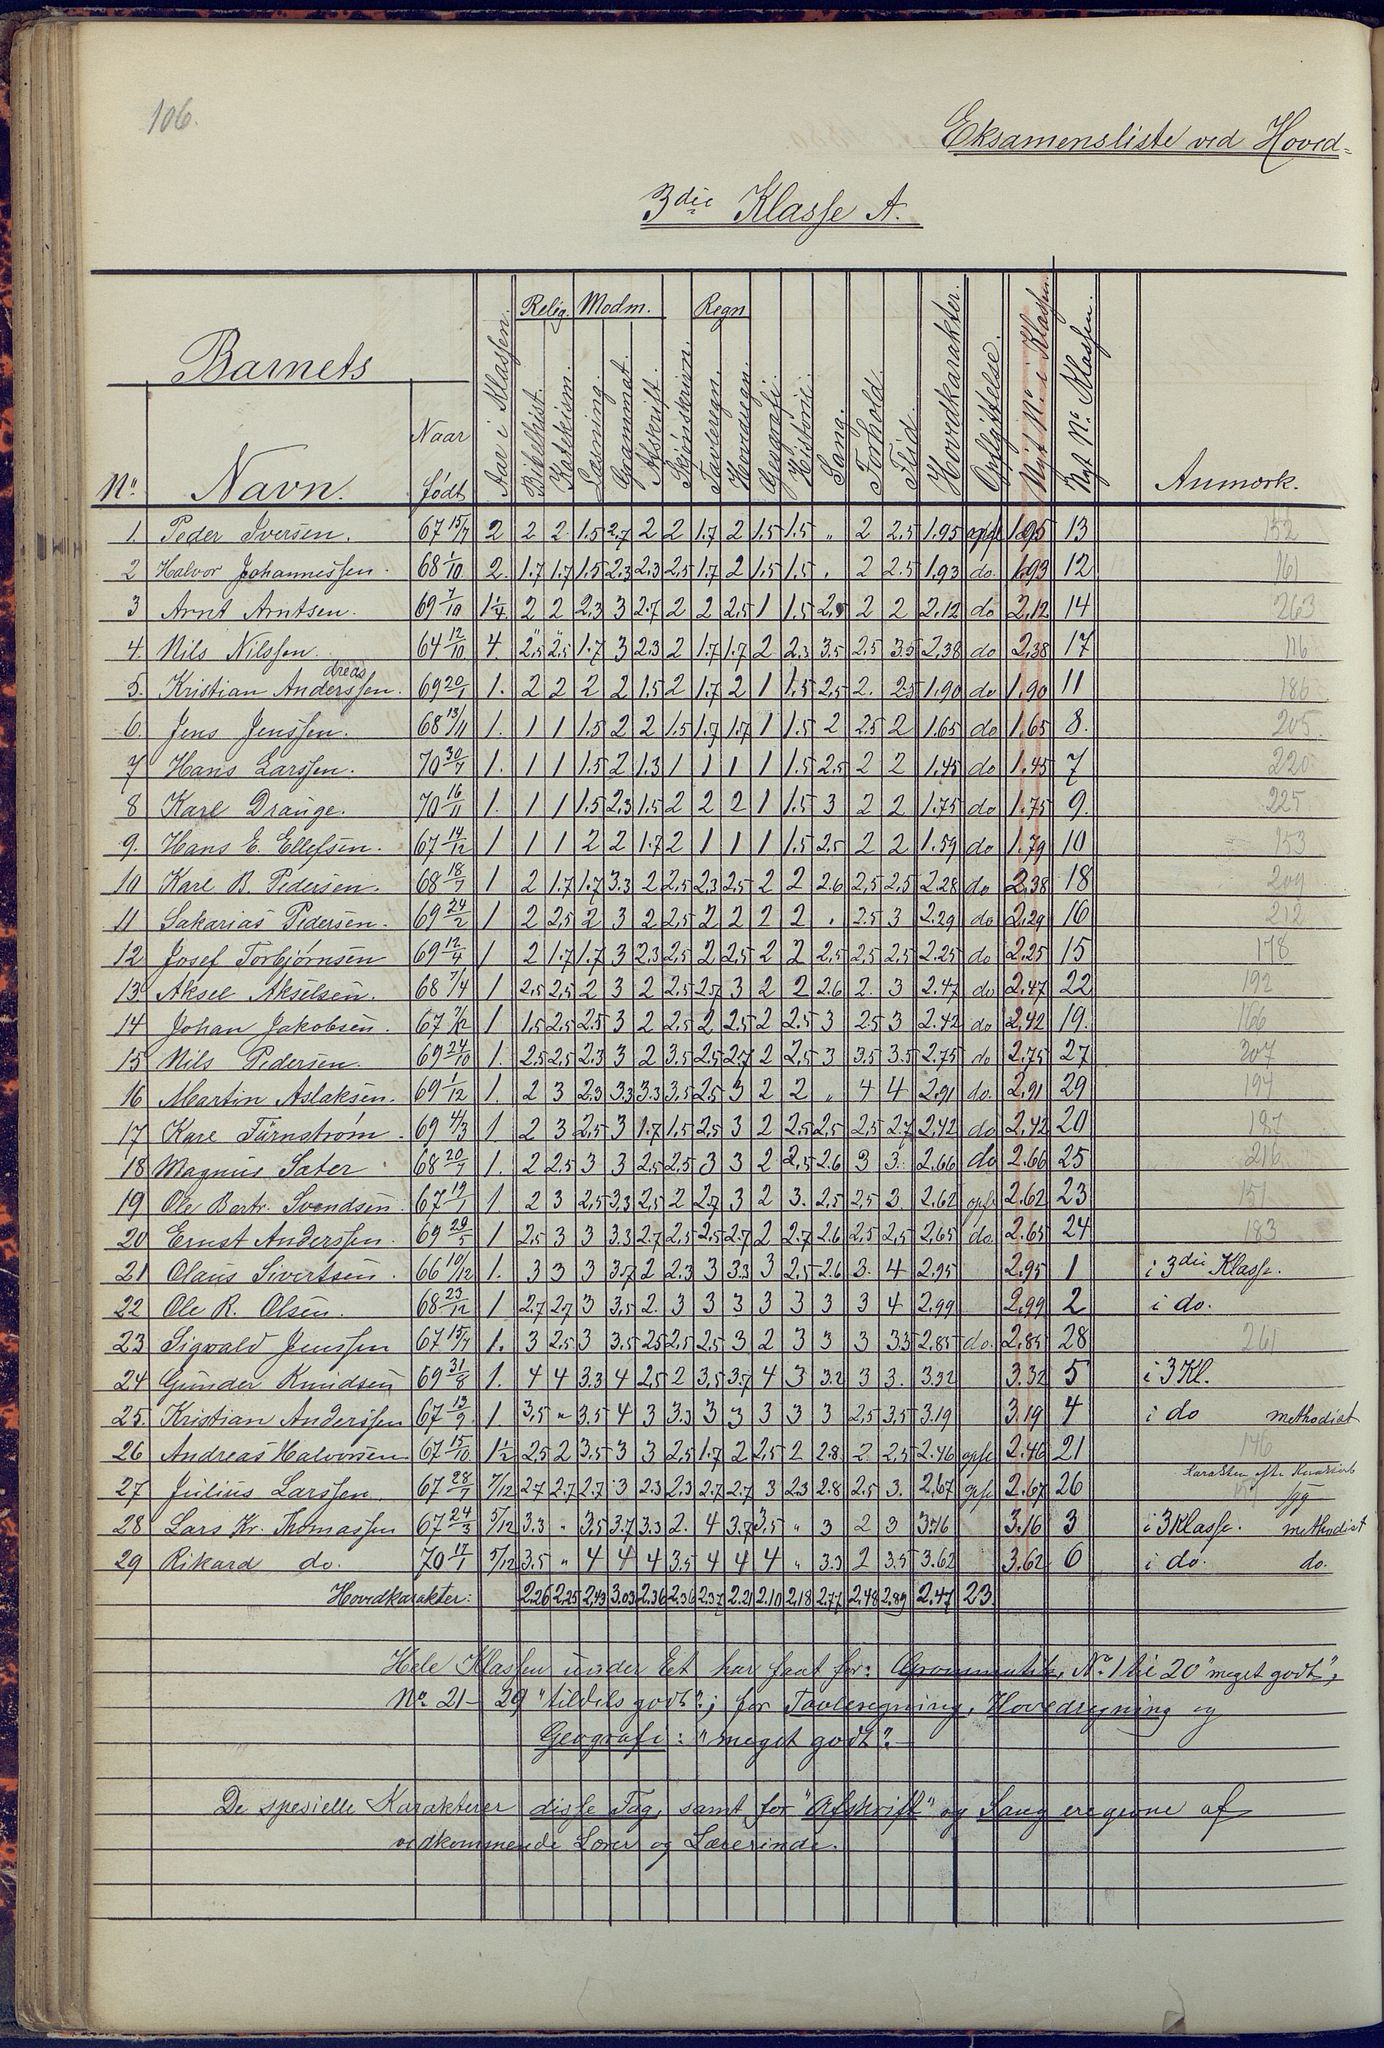 106.
Eksamensliste ved Hoved-
3die Klasse A.
Relig. Modm. Regn
Barnets
No. Navn. Naar født Aar i Klassen. Bibelhist. Katekism. Læsning. Grammat. Afskrift. Skjønskrivn. Tavleregn. Hovdregn. Geografi. Historie. Sang. Forhold. Flid. Hovedkarakter. Opflyttelse. Nyt No. i Klassen. Nyt No. Klassen. Anmærk.
1. Peder Iversen. 67 15/7 2 2 2 1.5 2.7 2 2 1.7 2 1.5 1.5 „ 2 2.5 1.95 opfl 1.95 13 152
2 Halvor Johannessen. 68 1/10 2. 1.7 1.7 1.5 2.3 2.3 2.5 1.7 2 1.5 1.5 . 2 2.5 1.93 do. 1.93 12 161
3 Arnt Arntsen. 69 7/10 1 1/4 2 2 2.3 3 2.7 2 2 2.5 1 1.5 2.5 2 2 2.12 do 2.12 14 263
4. Nils Nilssen. 64 12/10 4. 2.5 2.5 1.7 3 2.3 2 1.7 1.7 2 2.3 3.5 2.5 3.5 2.38 do 2.38 17 116
dreas
5. Kristian Anderssen. 69 20/1 1. 2 2 2 2 1.5 2 1.7 2 1 1.5 2.5 2. 2.5 1.90 do 1.90 11 186
6. Jens Jenssen. 68 13/11 1. 1 1 1.5 2 2 1.5 1.7 1.7 1 1.5 2 2.5 2 1.65 do 1.65 8. 205.
7 Hans Larssen. 70 30/7 1. 1 1 1.5 2 1.3 1 1 1 1 1.5 2.5 2 2 1.45 do 1.45 7 220
8 Karl Drange. 70 16/11 1. 1 1 1.5 2.3 1.5 2 2 2 1 1.5 3 2 2 1.75 do 1.75 9. 225
9. Hans E. Ellefsen. 67 14/12 1 1 1 2 2 1.7 2 1 1 1 1.5 2.5 2 2 1.59 do 1.79 10 153
10 Karl B. Pedersen. 68 18/7 1 2 1.7 1.7 3.3 2 2.5 2.3 2.5 2 2 2.6 2.5 2.5 2.28 do 2.38 18 209
11 Sakarias Pedersen. 69 24/2 1 2 2.5 2 3 2 2.5 2 2 2 2 . 2.5 3 2.29 do 2.29 16 212
12 Josef Torbjørnsen 69 12/4 1 2 1.7 1.7 3 2.3 2.5 2 2.5 2 2 2.5 2.5 2.5 2.25 do 2.25 15 178
13. Aksel Akselsen. 68 7/4 1 2.5 2.5 2 3 2 2.5 2.7 3 2 2 2.6 2. 3 2.47 do. 2.47 22 192
14 Johan Jakobsen. 67 7/12 1 1.5 2.5 2.5 3 2 2.5 2 2.5 2 2.5 3 2.5 3 2.42 do 2.42 19. 166
15 Nils Pedersen. 69 24/10 1. 2.5 2.5 2.3 3 2 3.5 2.5 2.7 2 2.5 3 3.5 3.5 2.75 do 2.75 27 207
16 Martin Aslaksen. 69 1/12 1. 2 3 2.3 3.3 3.3 3.5 2.5 3 2 2 „ 4 4 2.91 do. 2.91 29 194
17 Karl Tärnstrøm. 69 4/3 1 2 3 2.5 3 1.7 1.5 2.5 3 2 2.5 2.5 2.5 2.7 2.42 do 2.42 20 187
18 Magnus Sater 68 20/7 1. 2 2.5 3 3 2.5 2.5 3 3 2 2.5 2.6 3 3. 2.66 do 2.66 25 216
19 Ole Bertr. Svendsen. 67 19/1 1 2 3 2.5 3.3 2.5 2 2.7 3 2 3. 2.5 2.5 3. 2.62 opfl 2.62 23 151
20 Ernst Anderssen. 69 29/5 1 2.5 3 3 3.3 2.7 2.5 2.5 2.7 2 2.7 2.6 2.5 2.5 2.65 do. 2.65 24 183
21 Olaus Sivertsen. 66 10/12 1. 3 3 3 3.7 2 2.3 3 3.3 3 2.5 2.6 3. 4 2.95 2.95 1 i 3die Klasse.
22 Ole R. Olsen. 68 23/12 1 2.7 2.7 3 3.5 2. 3 3 3 3 3 3 3 4 2.99 2.99 2 i do.
23 Sigvald Jenssen 67 15/7 1. 3 2.5 3 3.5 2.5 2.5 2.5 3 2 3 3 3 3.5 2.85 do. 2.85 28 261
24 Gunder Knudsen 69 31/8 1. 4 4 3.3 4 2.5 2 3.5 3.7 4 3 3.2 3 3. 3.32 3.32 5 i 3 Kl.
25. Kristian Anderssen 67 13/9 1. 3.5 „ 3.5 4 3 3.3 3 3 3 3 3 2.5 3.5 3.19 3.19 4 i do methodist
26 Andreas Halvorsen 67 15/10 1 1/2 2.5 2 3.5 3 3 2.5 1.7 2 2.5 2 2.8 2. 2.5 2.46 opfl 2.46 21 146
27 Julius Larssen. 67 28/7 7/12 2.7 2.7 2.7 3 2.3 2.3 2.7 2.7 3 2.3 2.8 2.5 3. 2.67 opfl 2.67 26 Karakter efter
28 Lars Kr. Thomassen 67 24/3 5/12 3.3 „ 3.5 3.7 3.3 2. 4 3.7 3.5 „ 3 2 3 3.16 3.16 3 i 3 Klasse. methodist
29 Rikard do. 70 17/1 5/12 3.5 „ 4 4 4 3.5 4 4 4 „ 3.3 2 3.5 3.62 3.62 6 i do. do.
Hovedkarakter: 2.26 2.25 2.43 3.03 2.36 2.36 2.37 2.21 2.10 2.18 2.77 2.48 2.89 2.47 23.
Hele Klassen under Et har faat for: Grammatik, No. 1 til 20 "meget godt",
No. 21 - 29 "tildels godt"; for Tavleregning, Hovedregning og
Geografi: "meget godt".
De spesielle Karakterer disse Fag, samt for "Afskrift" og Sang ere givne af
vedkommende Lærer og Lærerinde.